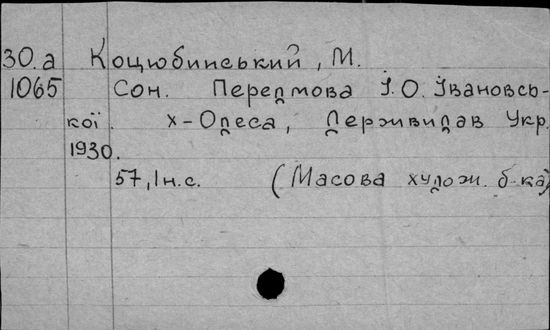 30.а Коцюбинський, М.
1065 Сон. Передмова І.О. Івановсь-
кої. х-Одеса, Держвидав Укр.
1930.
57, 1 н.с. (Масова худож. б-ка)